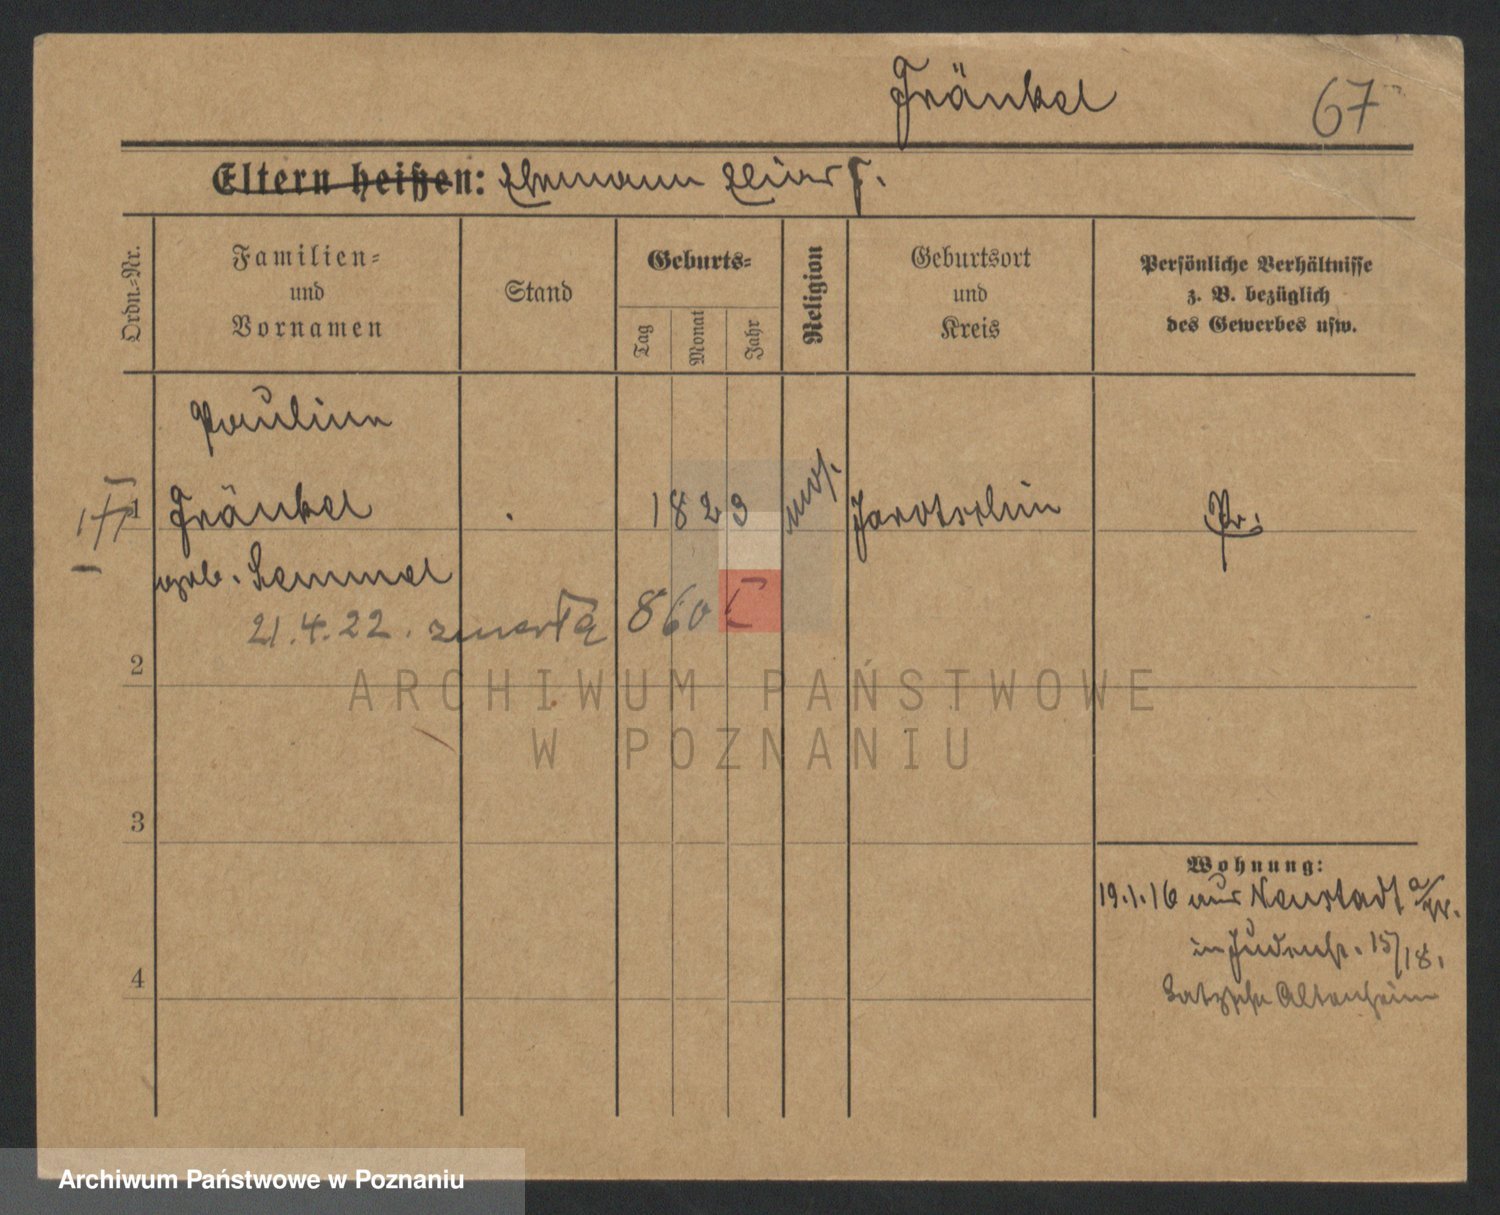 Fränkel
67
Eltern heißen: Ehemann F.
Ordn.-Nr.
Familien-
und
Vornamen
Stand
Geburts-
Tag
Monat
Jahr
Religion
Geburtsort
und
Kreis
Persönliche Verhältnisse
z. B. bezüglich
des Gewerbes usw.
Pauline
1 Fränkel 1823 mos. Jarotschin Pr.
geb. Hemmel
21.4.22. zmarła 860 I
2
ARCHIWUM PAŃSTWOWE
W POZNANIU
3
Wohnung:
19.1.16 aus Neustadt a/W.
in Judenstr. 15/18.
4
Latzsche Altenheim
Archiwum Państwowe w Poznaniu